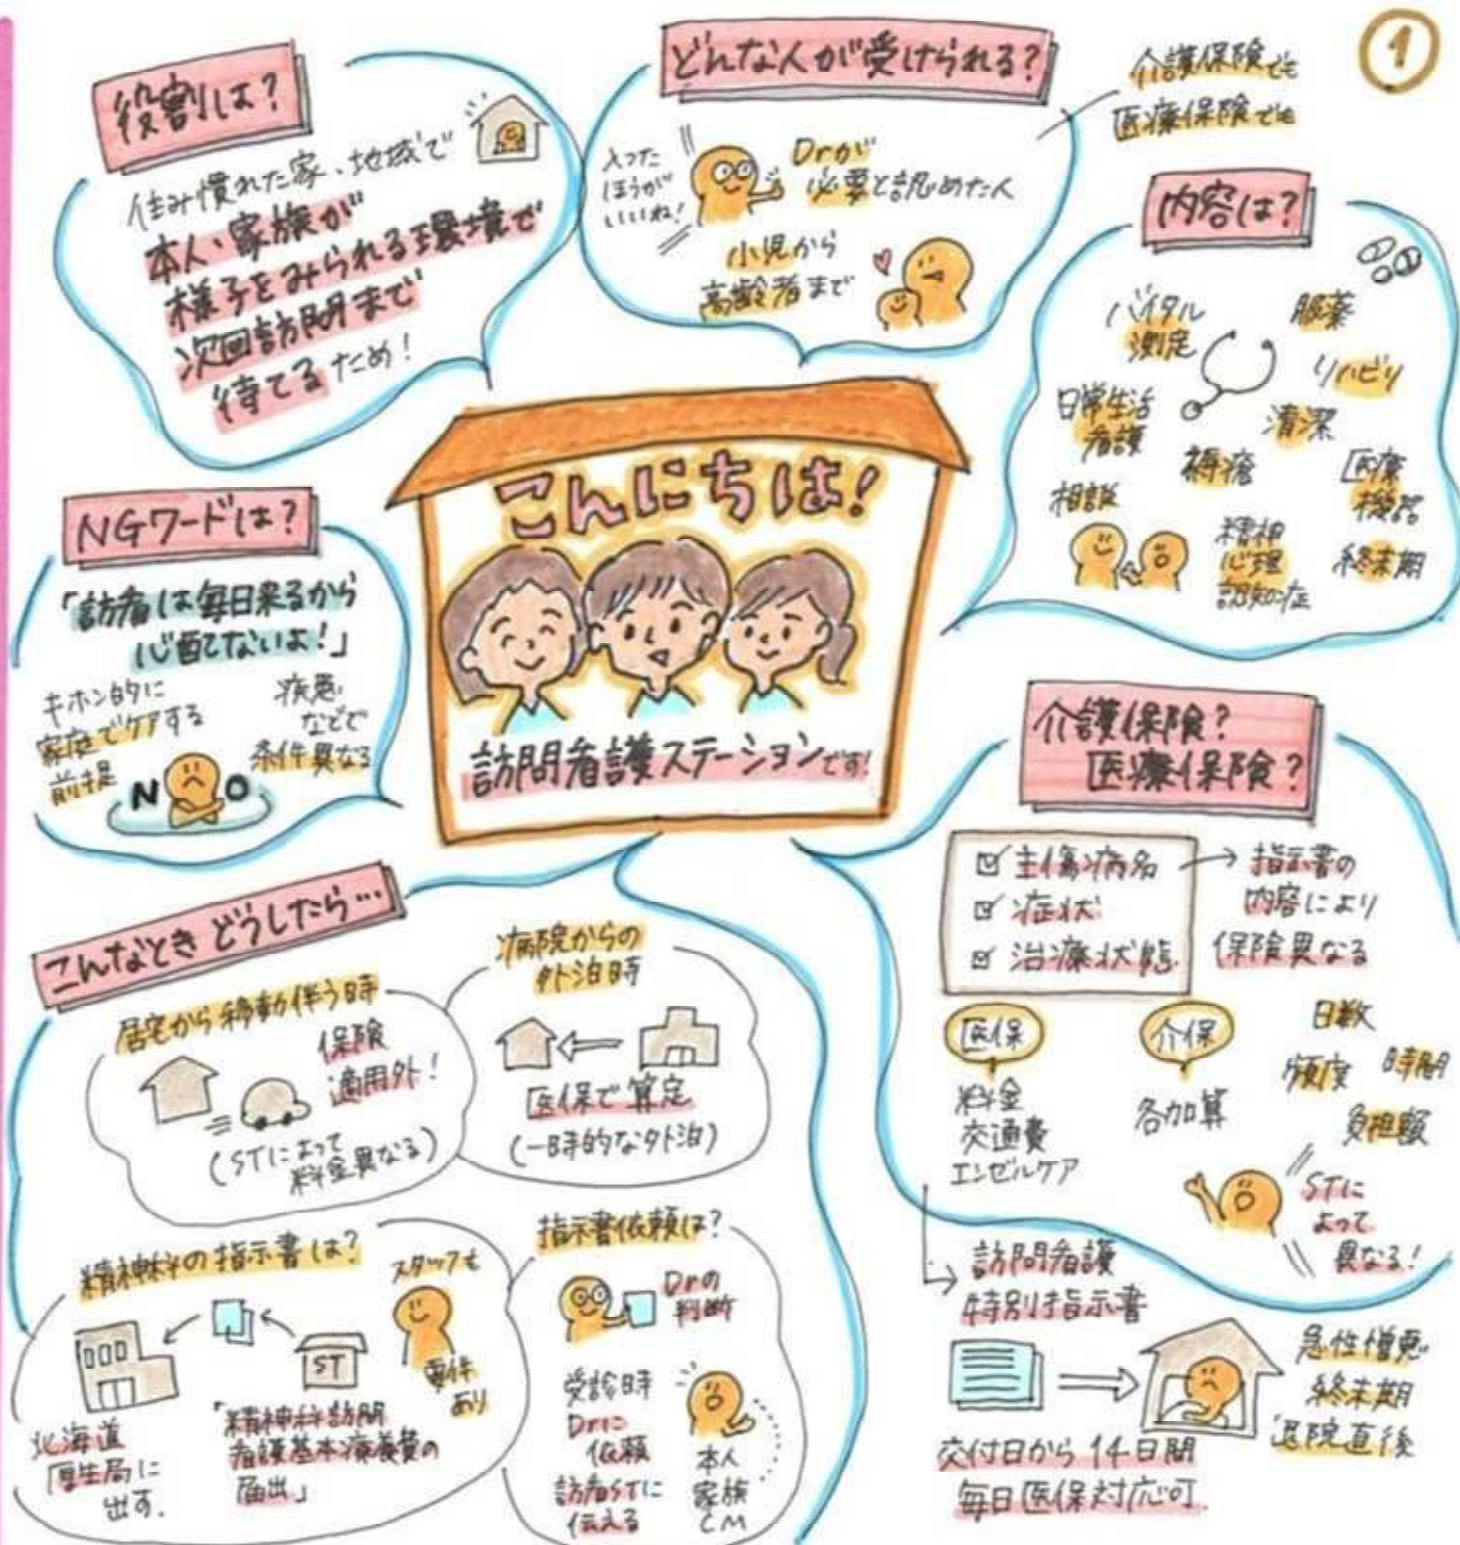 ①
役割は?
住み慣れた家、地域で
本人・家族が
様子をみられる環境で
次回訪問まで
待てるため!
どんな人が受けられる?
介護保険でも
医療保険でも
入った
ほうが
いいね!
Drが
必要と認めた人
小児から
高齢者まで
内容は?
バイタル
測定
服薬
リハビリ
日常生活
看護
清潔
褥瘡
医療
機器
相談
精神
心理
認知症
終末期
こんにちは!
訪問看護ステーションです!
NGワードは?
「訪看は毎日来るから
心配ないよ!」
キホン的に
家庭でケアする
前提
疾患
などで
条件異なる
NO
介護保険?
医療保険?
☑主傷病名
☑症状
☑治療状態
指示書の
内容により
保険異なる
医保
料金
交通費
エンゼルケア
介保
各加算
日数
頻度
時間
負担額
STに
よって
異なる!
訪問看護
特別指示書
急性憎悪
終末期
退院直後
交付日から14日間
毎日医保対応可
こんなとき どうしたら…
居宅から移動伴う時
保険
適用外!
(STによって
料金異なる)
病院からの
外泊時
医保で算定
(一時的な外泊)
精神科の指示書は?
スタッフも
要件
あり
ST
北海道
厚生局に
出す.
「精神科訪問
看護基本療養費の
届出」
指示書依頼は?
Drの
判断
受診時
Drに
依頼
訪看STに
伝える
本人
家族
CM